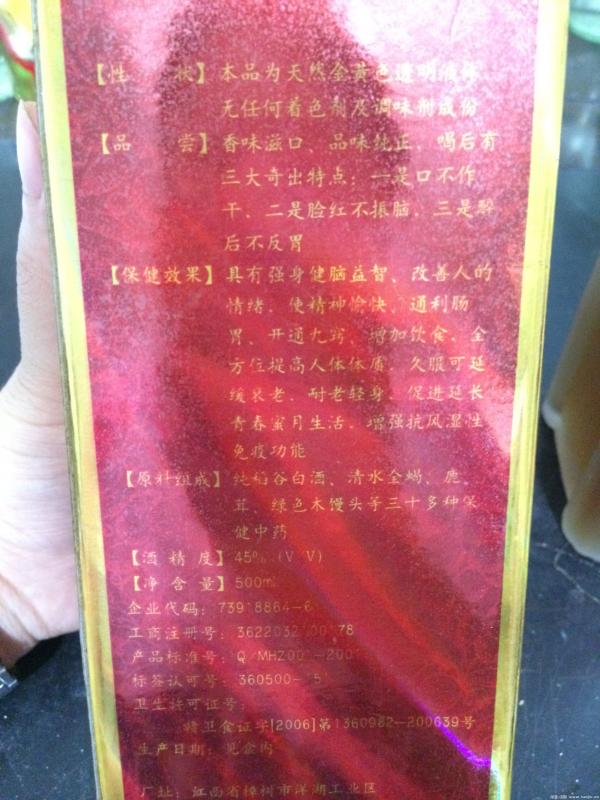 【性 状】本品为天然金黄色透明液体
无任何着色剂及调味剂成份
【品 尝】香味滋口、品味纯正、喝后有
三大奇出特点：一是口不作
干、二是脸红不振脑、三是醉
后不反胃
【保健效果】具有强身健脑益智、改善人的
情绪、使精神愉快、通利肠
胃、开通九窍、增加饮食、全
方位提高人体体质、久服可延
缓衰老、耐老轻身、促进延长
青春蜜月生活、增强抗风湿性
免疫功能
【原料组成】纯稻谷白酒、清水全蝎、鹿
茸、绿色木馒头等三十多种保
健中药
【酒 精 度】45%(V/V)
【净 含 量】500ml
企业代码：739 8864-6
工商注册号：3622032 00 78
产品标准号：Q/MHZ00 -200
标签认可号：360500- 5
卫生许可证号：
赣卫食证字[2006]第1360982-200639号
生产日期：见盒内
厂址：江西省樟树市洋湖工业区